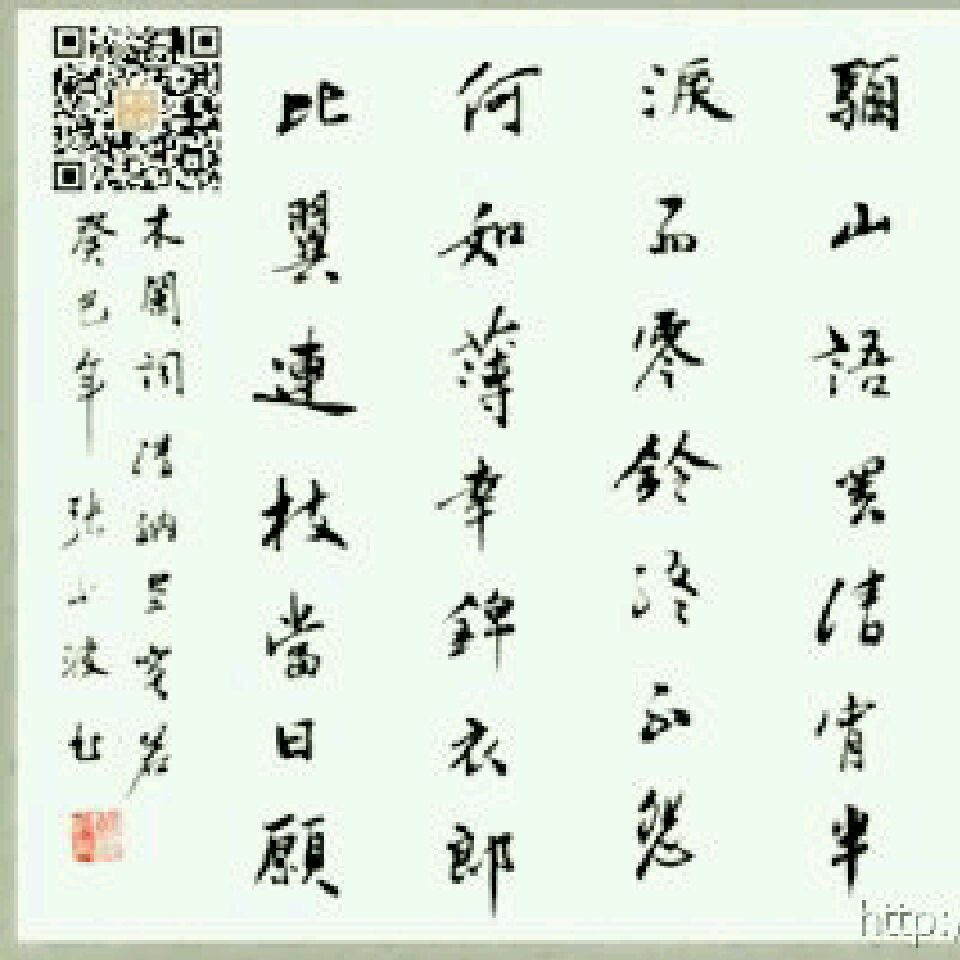 驪山語罷清宵半
淚雨零鈴終不怨
何如薄幸錦衣郎
比翼連枝當日願
木蘭詞 清 納兰容若
癸巳年 張小波書
http:/